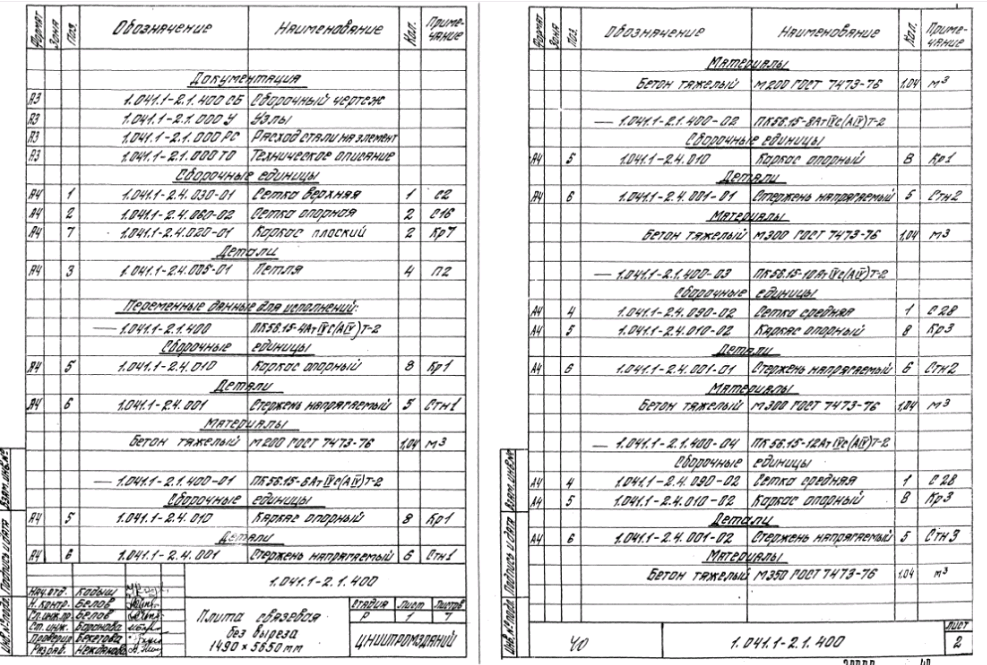 Формат Зона Поз. Обозначение Наименование Кол. Приме-
чание
Документация
А3 1.041.1-2.1.400 СБ Сборочный чертеж
А3 1.041.1-2.1.000 У Узлы
А3 1.041.1-2.1.000 РС Расход стали на элемент
А3 1.041.1-2.1.000 ТО Техническое описание
Сборочные единицы
А4 1 1.041.1-2.4.030-01 Сетка верхняя 1 С2
А4 2 1.041.1-2.4.060-02 Сетка опорная 2 С16
А4 7 1.041.1-2.4.020-01 Каркас плоский 2 Кр7
Детали
А4 3 1.041.1-2.4.005-01 Петля 4 П2
Переменные данные для исполнений:
— 1.041.1-2.1.400 ПК56.15-4АтⅣС(АⅣ)Т-2
Сборочные единицы
А4 5 1.041.1-2.4.010 Каркас опорный 8 Кр1
Детали
А4 6 1.041.1-2.4.001 Стержень напрягаемый 5 Стн1
Материалы
Бетон тяжелый М200 ГОСТ 7473-76 1,04 м³
— 1.041.1-2.1.400-01 ПК56.15-6АтⅣС(АⅣ)Т-2
Сборочные единицы
А4 5 1.041.1-2.4.010 Каркас опорный 8 Кр1
Детали
А4 6 1.041.1-2.4.001 Стержень напрягаемый 6 Стн1
Инв.№ подл. Подпись и дата Взам.инв.№
1.041.1-2.1.400
Нач.отд. Кодыш
Н.контр. Белов
Гл.инж.пр. Белов
Ст.инж. Баранова
Проверил Бекетова
Разраб.
Плита связевая
без выреза
1490×5650 мм
Стадия Лист Листов
Р 1 7
ЦНИИПРОМЗДАНИЙ
Формат Зона Поз. Обозначение Наименование Кол. Приме-
чание
Материалы
Бетон тяжелый М200 ГОСТ 7473-76 1,04 м³
— 1.041.1-2.1.400-02 ПК56.15-8АтⅣС(АⅣ)Т-2
Сборочные единицы
А4 5 1.041.1-2.4.010 Каркас опорный 8 Кр1
Детали
А4 6 1.041.1-2.4.001-01 Стержень напрягаемый 5 Стн2
Материалы
Бетон тяжелый М300 ГОСТ 7473-76 1,04 м³
— 1.041.1-2.1.400-03 ПК56.15-10АтⅣС(АⅣ)Т-2
Сборочные единицы
А4 4 1.041.1-2.4.090-02 Сетка средняя 1 С28
А4 5 1.041.1-2.4.010-02 Каркас опорный 8 Кр3
Детали
А4 6 1.041.1-2.4.001-01 Стержень напрягаемый 6 Стн2
Материалы
Бетон тяжелый М300 ГОСТ 7473-76 1,04 м³
— 1.041.1-2.1.400-04 ПК56.15-12АтⅣС(АⅣ)Т-2
Сборочные единицы
А4 4 1.041.1-2.4.090-02 Сетка средняя 1 С28
А4 5 1.041.1-2.4.010-02 Каркас опорный 8 Кр3
Детали
А4 6 1.041.1-2.4.001-02 Стержень напрягаемый 5 Стн3
Материалы
Бетон тяжелый М350 ГОСТ 7473-76 1,04 м³
Инв.№ подл. Подпись и дата Взам.инв.№
40 1.041.1-2.1.400 Лист
2